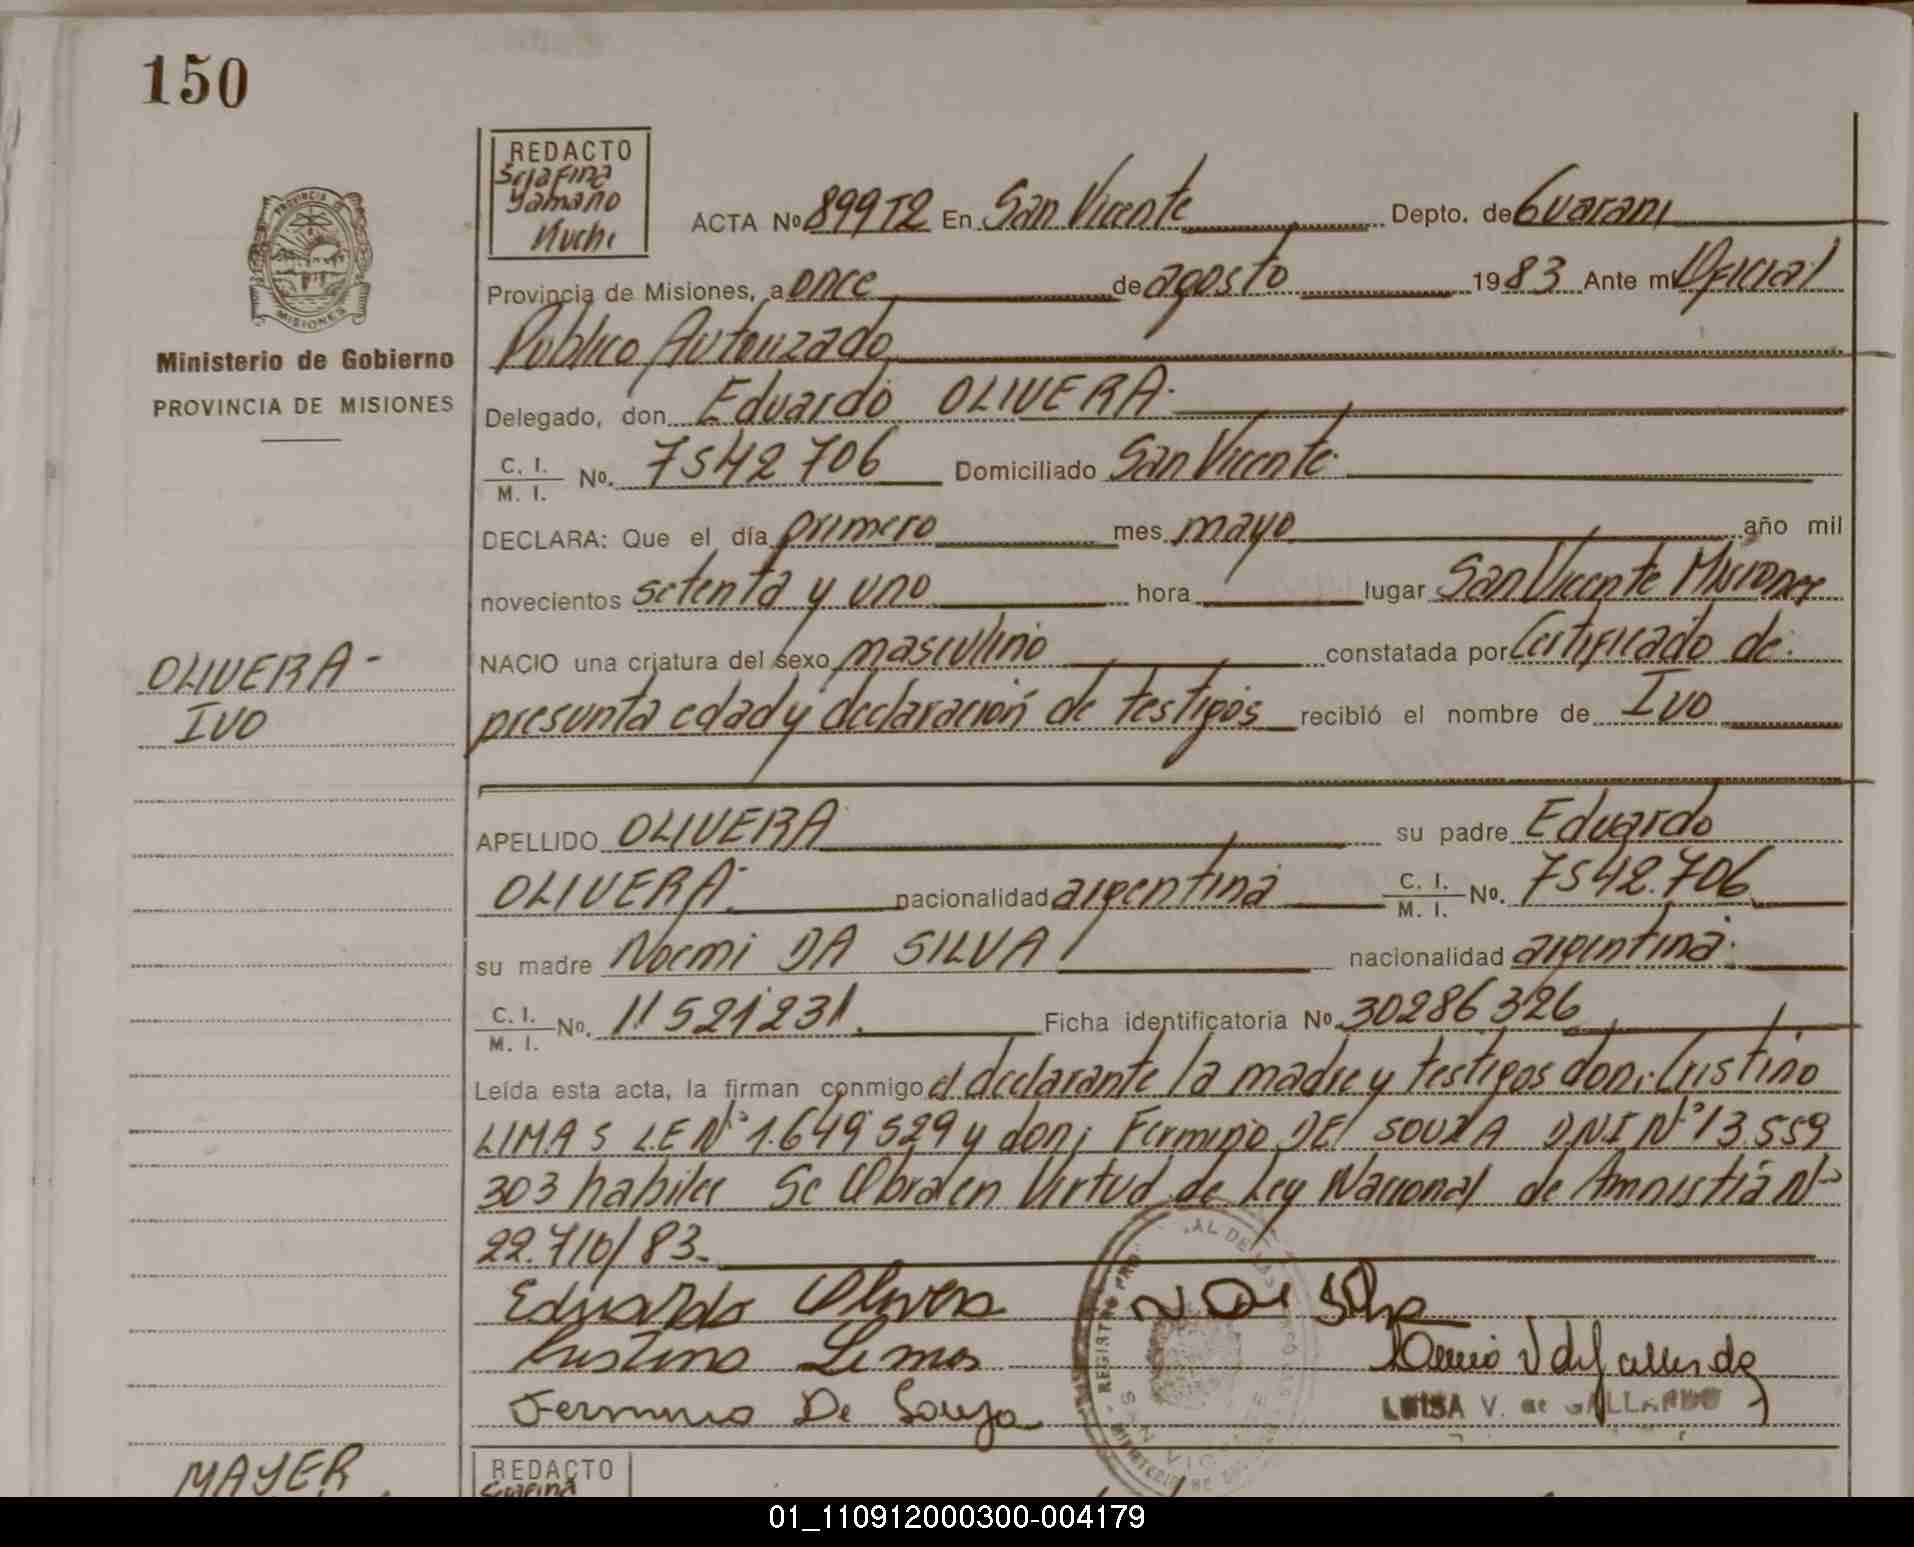 150
REDACTO
Serafina
Yamaño
Kuchi
ACTA Nº 899T2 En San Vicente Depto. de Guarani
Provincia de Misiones, a once de agosto 1983 Ante mi Oficial
Publico Autorizado
Ministerio de Gobierno
PROVINCIA DE MISIONES
MISIONES
Delegado, don Eduardo OLIVERA.
C. I.
M. I. No. 7542706 Domiciliado San Vicente.
DECLARA: Que el día primero mes mayo año mil
novecientos setenta y uno hora lugar San Vicente Misiones
OLIVERA-
IVO
NACIO una criatura del sexo masculino constatada por Certificado de.
presunta edad y declaración de testigos recibió el nombre de IVO
APELLIDO OLIVERA su padre Eduardo
OLIVERA. nacionalidad argentina C. I.
M. I. No. 7542.706
su madre Noemi DA SILVA nacionalidad argentina.
C. I.
M. I. No. 11521231. Ficha identificatoria No. 30286326
Leída esta acta, la firman conmigo el declarante la madre y testigos don: Cristino
LIMAS L.E Nº 1.649529 y don: Fermino DE SOUZA D.N.I Nº 13.559
303 habiles Se Obra en Virtud de Ley Nacional de Amnistiá Nº
22.710/83.
Eduardo Olivera N Da Silva
Cristino Limas
Fermino De Souza
LUISA V. de GALLARDO
MAYER
REDACTO
Serafina
01_110912000300-004179